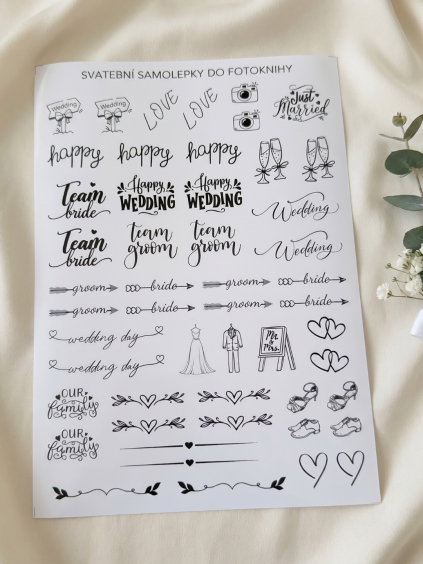 SVATEBNÍ SAMOLEPKY DO FOTOKNIHY
Wedding Wedding LOVE LOVE Just Married
happy happy happy
Team bride Happy WEDDING Happy WEDDING Wedding
Team bride team groom team groom Wedding
groom bride groom bride
groom bride groom bride
wedding day Mr. & Mrs.
wedding day
OUR family
OUR family